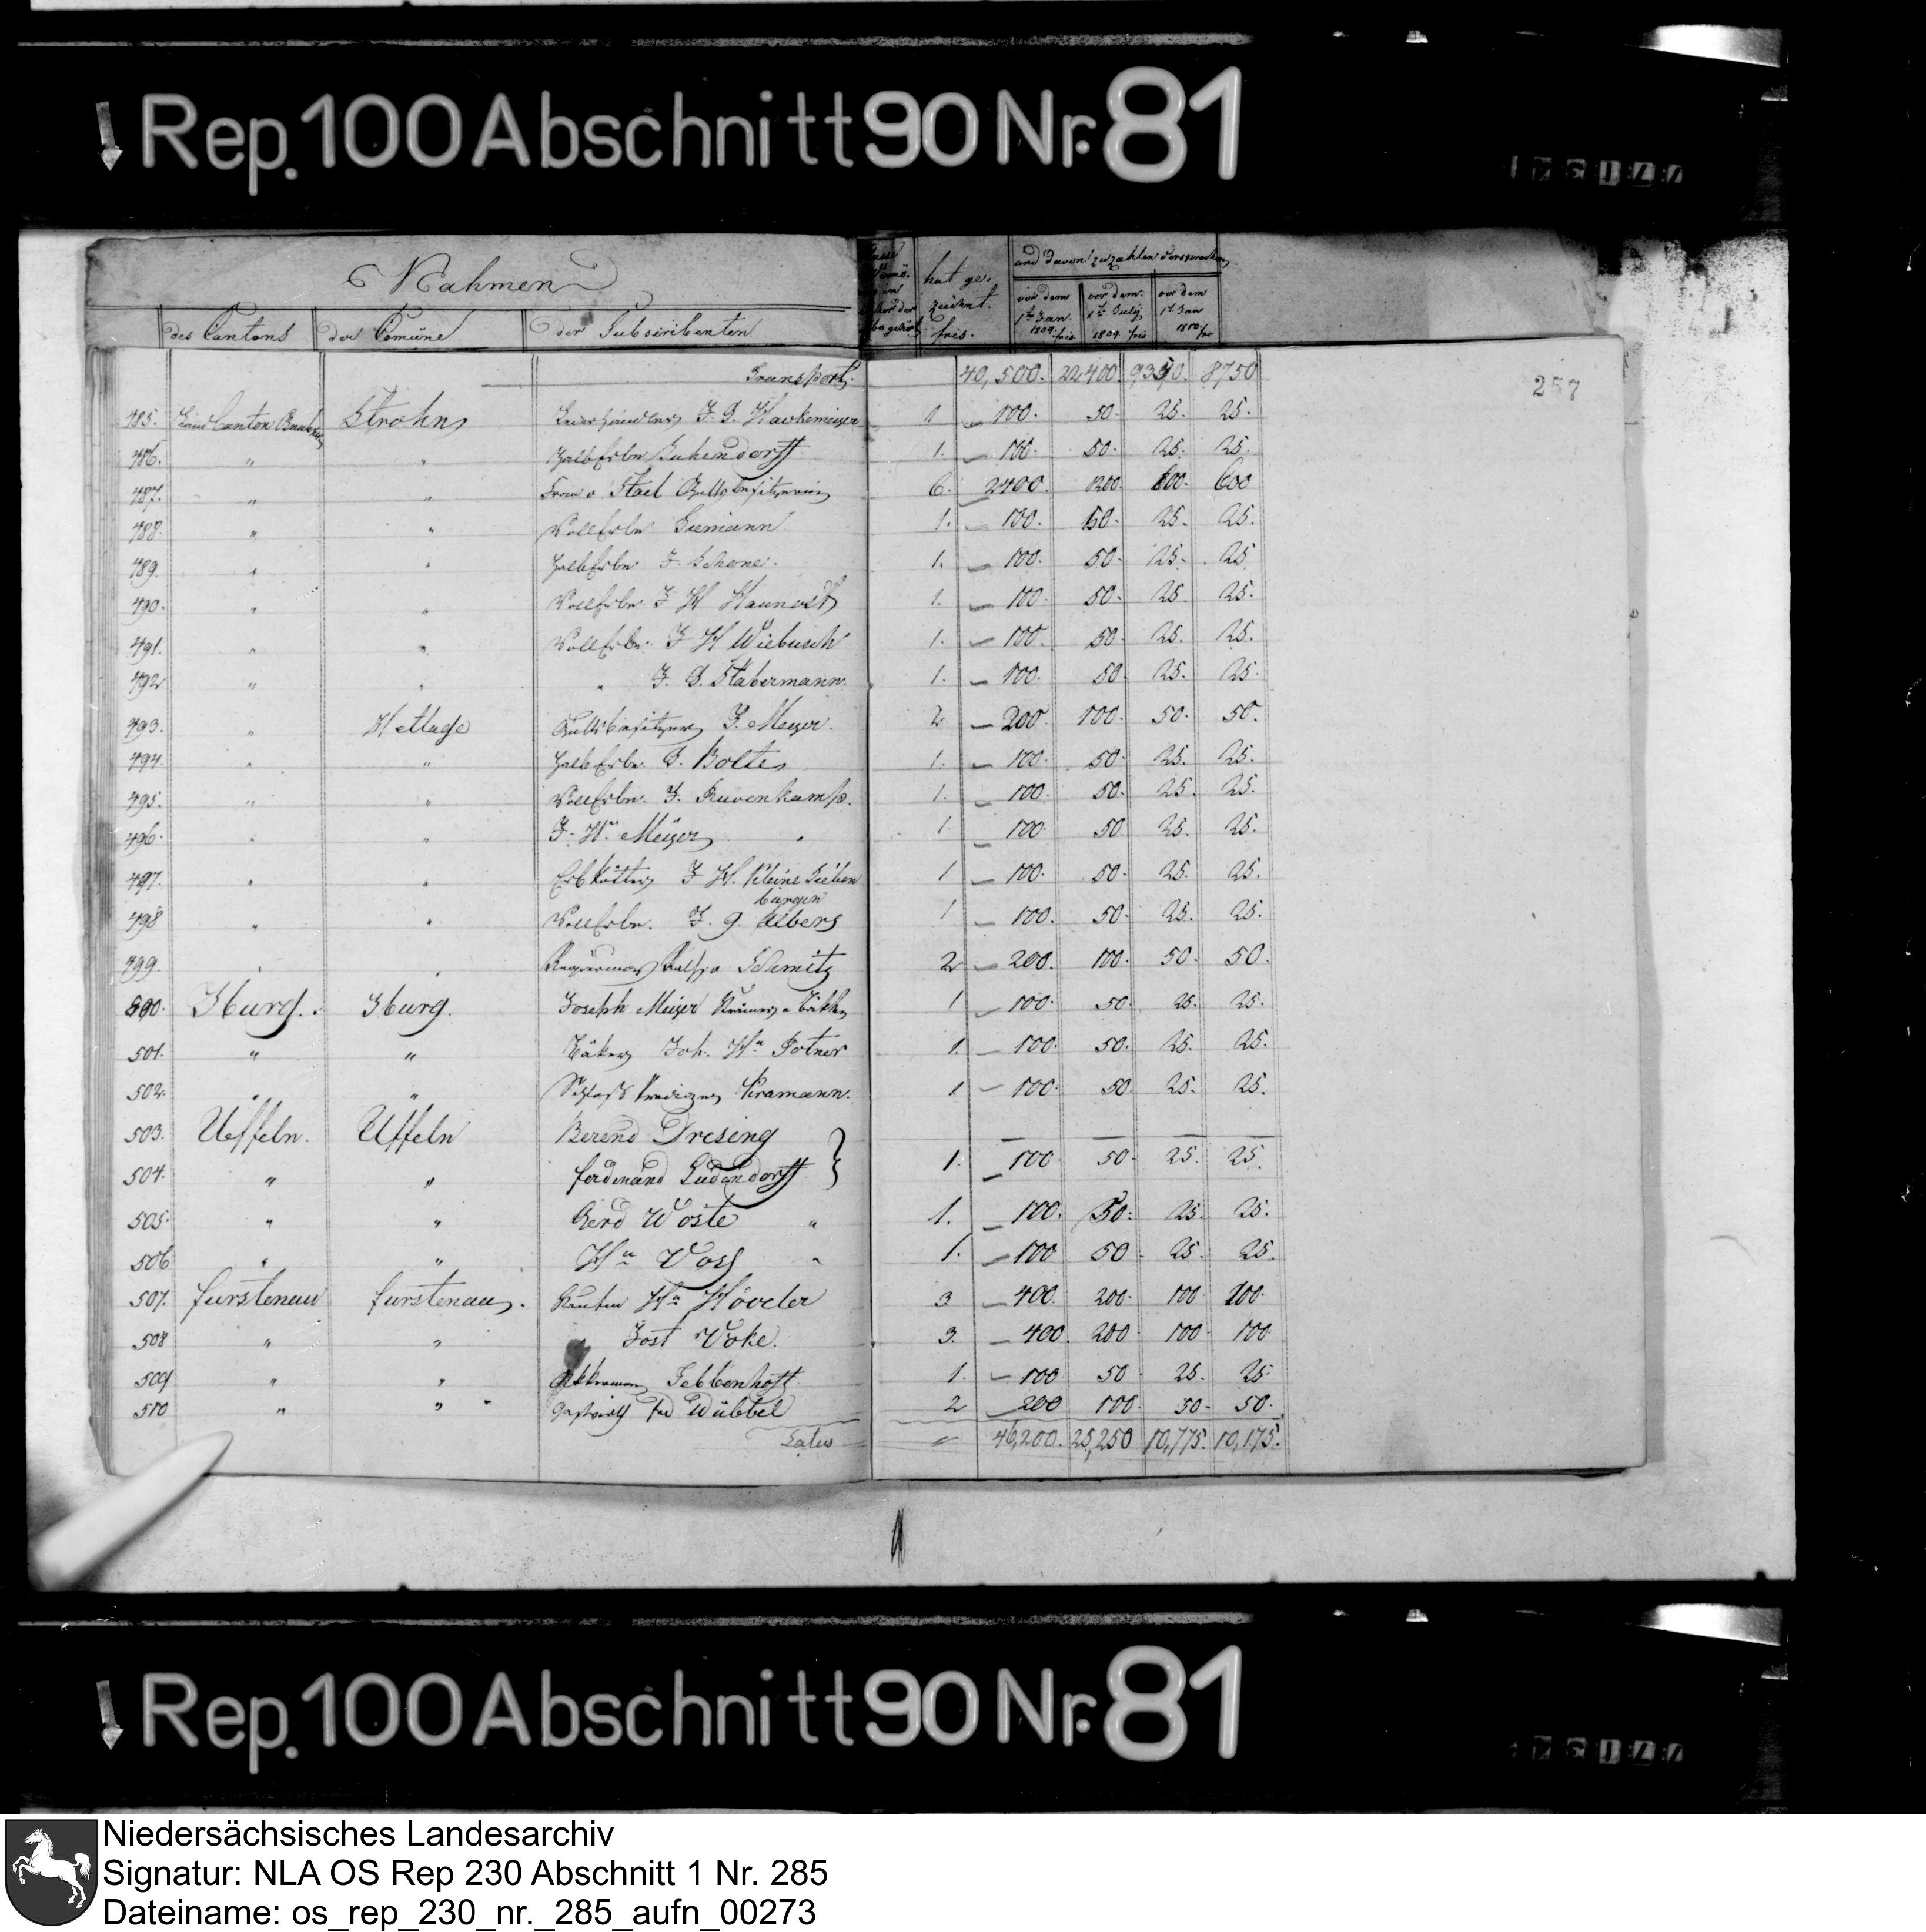 Rep. 100 Abschnitt 90 Nr. 81
Nahmen
hat ge-
zeichnet.
frcs.
und davon zu zahlen versprochen
vor dem 1ten Jan. 1809. frcs
vor dem 1ten July 1809 frcs
vor dem 1t Jan 1810 frc
des Cantons der Comüne der Subscribenten
Transport. 40,500. 22,400. 8750
257
485. Strohn J. D. Havkemeijer 1 100. 50. 25. 25.
486. " " Halberbe 1. 100. 50. 25. 25.
487. " " Frau v Stael Guttsbesitzerin 6. 2400. 1200. 600. 600
488. " " Vollerbe 1. 100. 50. 25. 25.
489. " " Halberbe J. Schone. 1. 100. 50. 25. 25
490. " " Vollerbe J H 1. 100. 50. 25. 25.
491. " " Vollerbe. J H Wiebusch 1. 100. 50. 25. 25.
492 " " " J. D. Stabermann. 1. 100. 50 25. 25.
493. " Hettage Guttsbesitzer J. Meyer. 2 200. 100. 50. 50.
494. " " Halberbe. D. Bolte 1. 100. 50. 25. 25.
495. " " Vollerbe. J. 1. 100. 50. 25. 25.
496. " " J. Hn. Meijer " 1. 100. 50 25. 25.
497. " " Erbkötter J H. Kleine Sieben 1 100. 50. 25. 25.
bürgen
498 " " Vollerbe. J. g. Albers 1 100. 50. 25. 25.
499. " " Schmitz 2 200. 100. 50. 50.
500. Iburg. Iburg. Joseph Meijer 1 100. 50. 25. 25.
501. " " Bäker Joh. Hn Potner 1. 100. 50. 25. 25.
502. " " Kramann. 1 100. 50. 25. 25.
503. Ueffeln. Uffeln Berend Dresing
504. " " ferdinand Ludendorff } 1. 100 50 25. 25.
505. " " Gerd Woste " 1. 100. 50. 25. 25.
506 " " Hn Voss " 1. 100 50 25. 25.
507. furstenau furstenau. Hn Höveler 3 400. 200. 100 100.
508 " " " Jost Voke. 3. 400. 200 100 100
509 " " Sebbenhoft 1. 100 50 25. 25.
510 " " Gastwirth Wübbel 2 200 100. 50. 50.
Latus " 46,200. 25,250 10,775. 10,175.
Rep. 100 Abschnitt 90 Nr. 81
Niedersächsisches Landesarchiv
Signatur: NLA OS Rep 230 Abschnitt 1 Nr. 285
Dateiname: os_rep_230_nr._285_aufn_00273